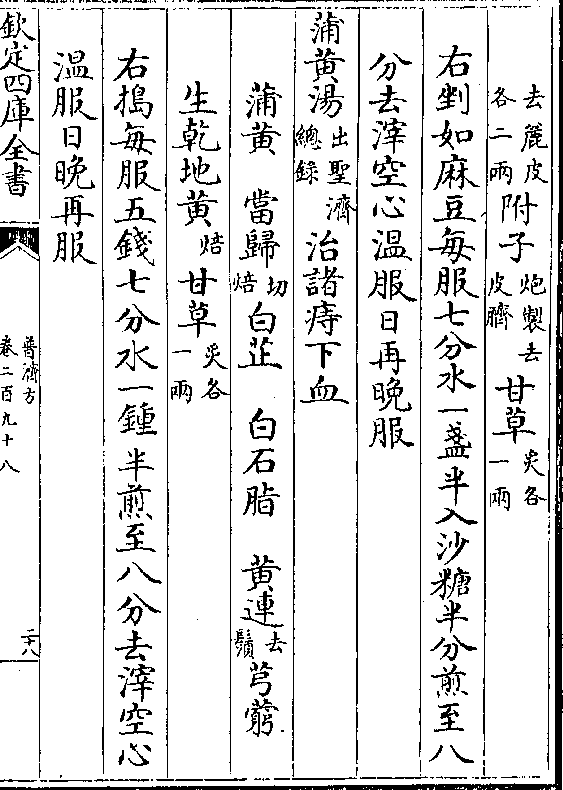 去麄皮各二兩附子炮製去皮臍甘草炙各一兩
右剉如麻豆每服七分水一盞半入沙糖半分煎至八
分去滓空心温服日再晚服
蒲黄湯出聖濟總録治諸痔下血
蒲黄 當歸切焙白芷 白石脂 黄連去鬚芎藭
生乾地黄焙甘草炙各一兩
右搗每服五錢七分水一鍾半煎至八分去滓空心
温服日晚再服
欽定四庫全書
普濟方
卷二百九十八
二十八